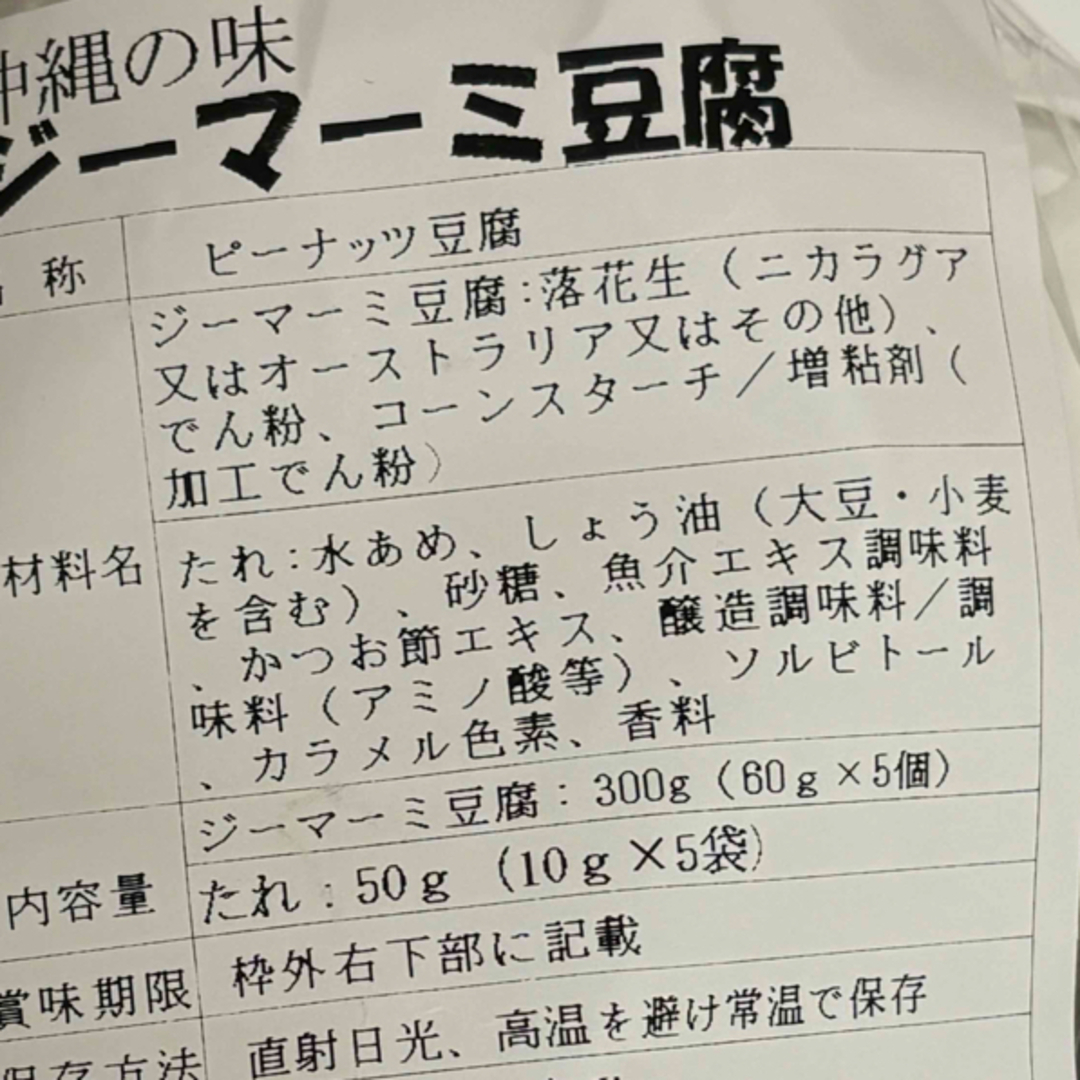 沖縄の味
ジーマーミ豆腐
名 称
ピーナッツ豆腐
ジーマーミ豆腐:落花生（ニカラグア
又はオーストラリア又はその他）、
でん粉、コーンスターチ／増粘剤（
加工でん粉）
材料名
たれ:水あめ、しょう油（大豆・小麦
を含む）、砂糖、魚介エキス調味料
、かつお節エキス、醸造調味料／調
味料（アミノ酸等）、ソルビトール
、カラメル色素、香料
内容量
ジーマーミ豆腐：300g（60g×5個）
たれ：50g （10g×5袋）
賞味期限
枠外右下部に記載
保存方法
直射日光、高温を避け常温で保存